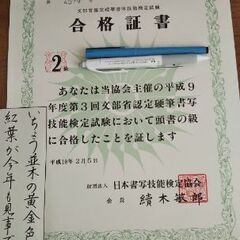 文部省認定硬筆書写技能検定試験
合格証書
2級
あなたは当協会主催の平成9
年度第3回文部省認定硬筆書写
技能検定試験において頭書の級
に合格したことを証します
平成10年2月5日
財団法人 日本書写技能検定協会
会長 續木敏郎
いちょう並木の黄金色
紅葉が今年も見事